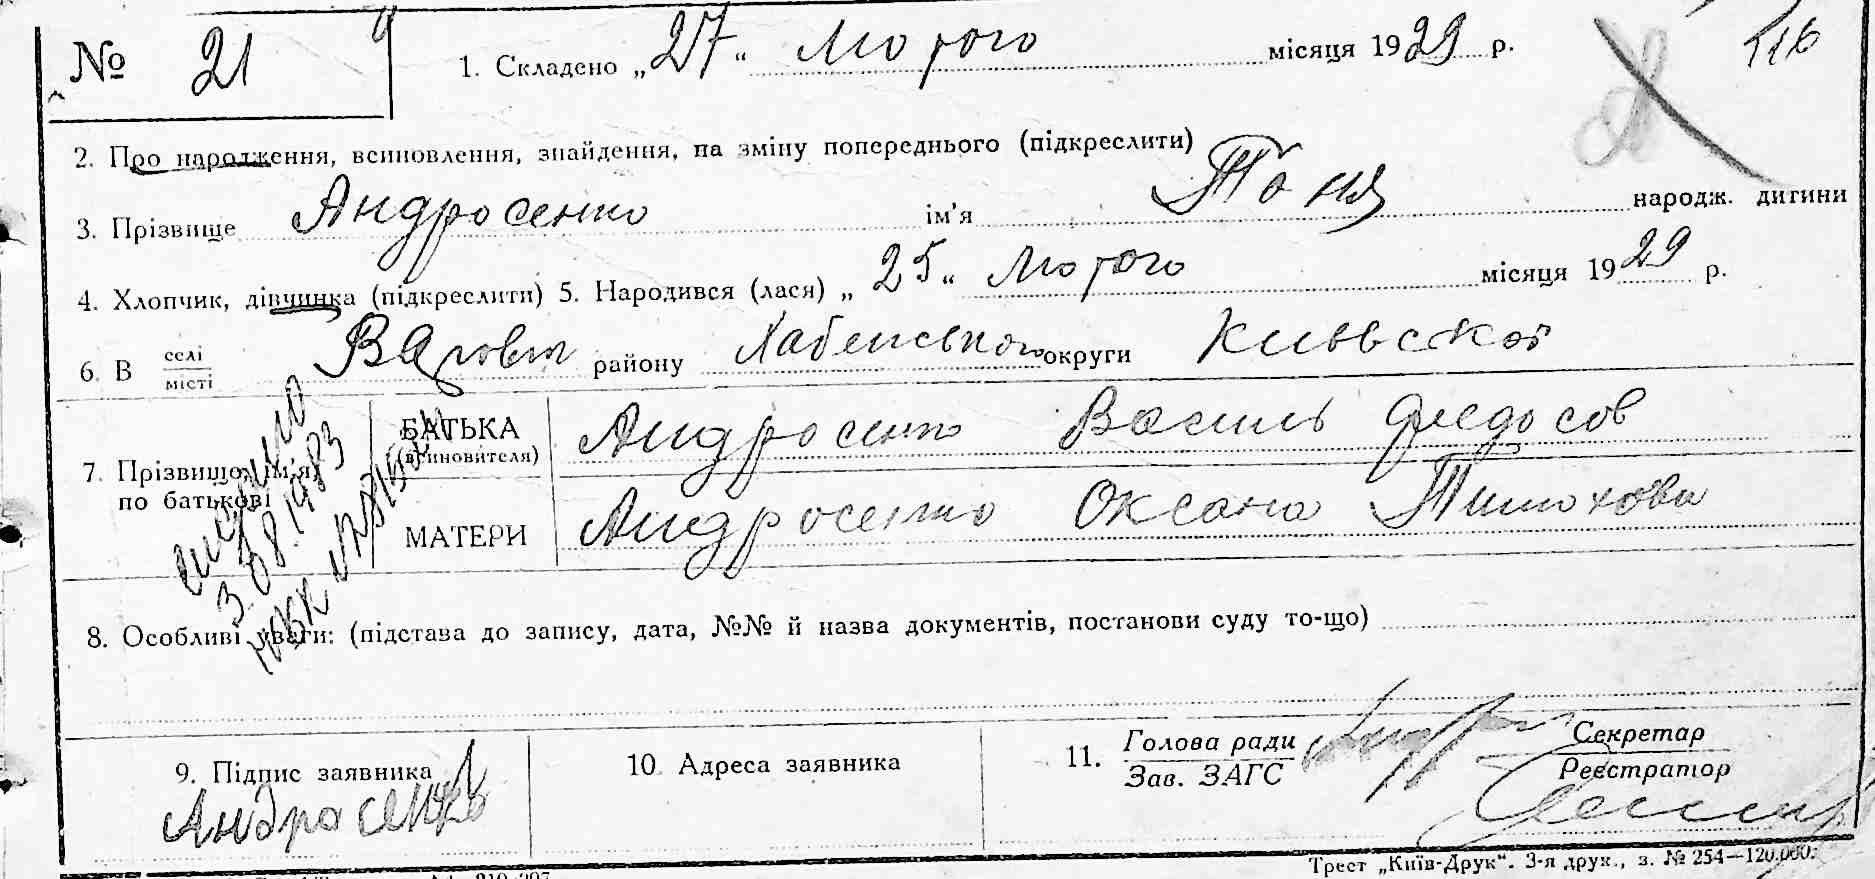 № 21
1. Складено „27“ Лютого місяця 1929 р.
116
2. Про народження, всиновлення, знайдення, на зміну попереднього (підкреслити)
3. Прізвище Андросенко ім'я Тоня народж. дитини
4. Хлопчик, дівчинка (підкреслити) 5. Народився (лася) „25“ Лютого місяця 1929 р.
6. В селі місті Варовичі району Хабенського округи Київської
7. Прізвище, ім'я, по батькові
БАТЬКА (всиновителя) Андросенко Василь Федосов
МАТЕРИ Андросенко Оксана Тимохови
3.08.1983
8. Особливі уваги: (підстава до запису, дата, №№ й назва документів, постанови суду то-що)
9. Підпис заявника
Андросенко
10. Адреса заявника
11. Голова ради Зав. ЗАГС
Секретар Реєстратор
Трест „Київ-Друк“. 3-я друк., з. № 254—120.000.